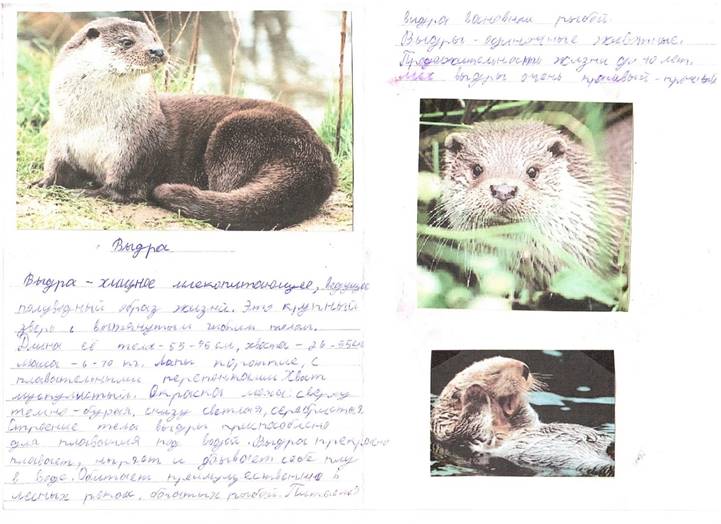 Выдра
Выдра - хищное млекопитающее, ведущее
полуводный образ жизни. Это крупный
зверь с вытянутым гибким телом.
Длина её тела - 55-95 см, хвоста - 26-55 см
масса - 6-10 кг. Лапы короткие, с
плавательными перепонками. Хвост
мускулистый. Окраска меха: сверху
темно-бурая, снизу светлая, серебристая.
Строение тела выдры приспособлено
для плавания под водой. Выдра прекрасно
плавает, ныряет и добывает себе еду
в воде. Обитает преимущественно в
лесных реках, богатых рыбой. Питается
выдра основном рыбой.
Выдры - одиночные животные.
Продолжительность жизни до 10 лет.
Мех выдры очень красивый - прочный